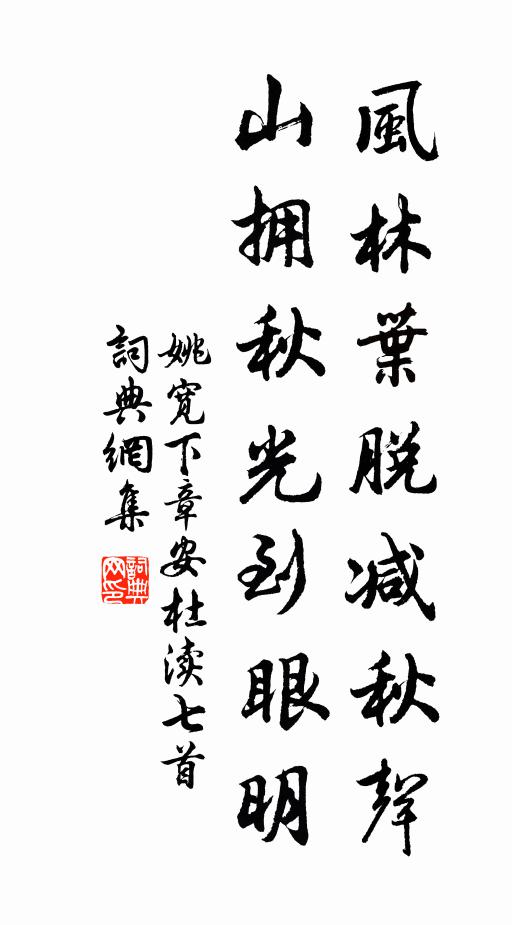 風林葉脱減秋聲
山拥秋光到眼明
姚寬下章安杜渎七首
詞典網集
詞典網印